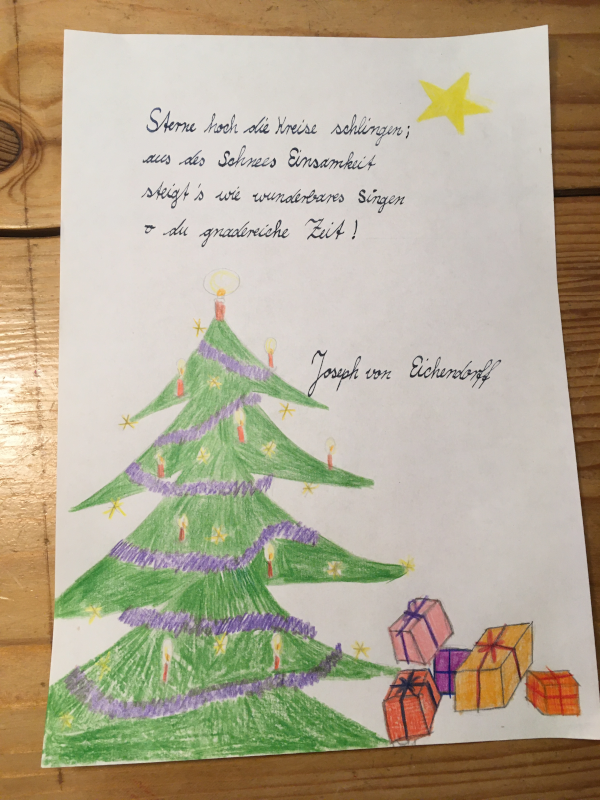 Sterne hoch die Kreise schlingen;
aus des Schnees Einsamkeit
steigt's wie wunderbares Singen
o du gnadereiche Zeit!
Joseph von Eichendorff